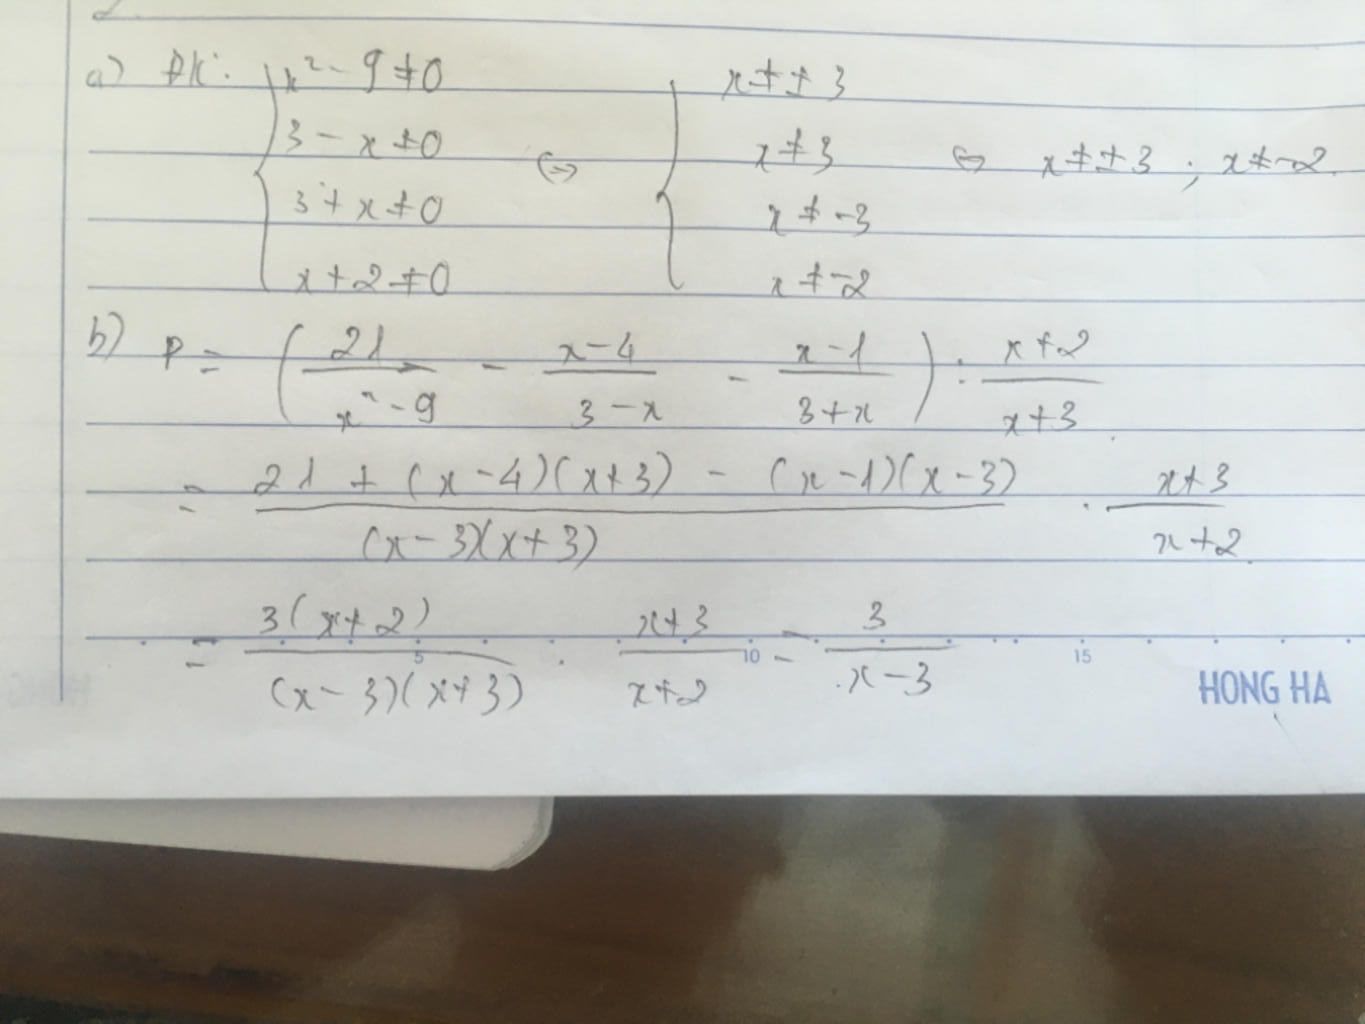 a) ĐK: { x² - 9 ≠ 0
3 - x ≠ 0
3 + x ≠ 0
x + 2 ≠ 0
⇔ { x ≠ ± 3
x ≠ 3
x ≠ -3
x ≠ -2
⇔ x ≠ ± 3 ; x ≠ -2.
b) P = ( 21 / (x² - 9) - (x - 4) / (3 - x) - (x - 1) / (3 + x) ) : (x + 2) / (x + 3)
= (21 + (x - 4)(x + 3) - (x - 1)(x - 3)) / ((x - 3)(x + 3)) . (x + 3) / (x + 2)
= 3(x + 2) / ((x - 3)(x + 3)) . (x + 3) / (x + 2) = 3 / (x - 3)
5 10 15
HONG HA